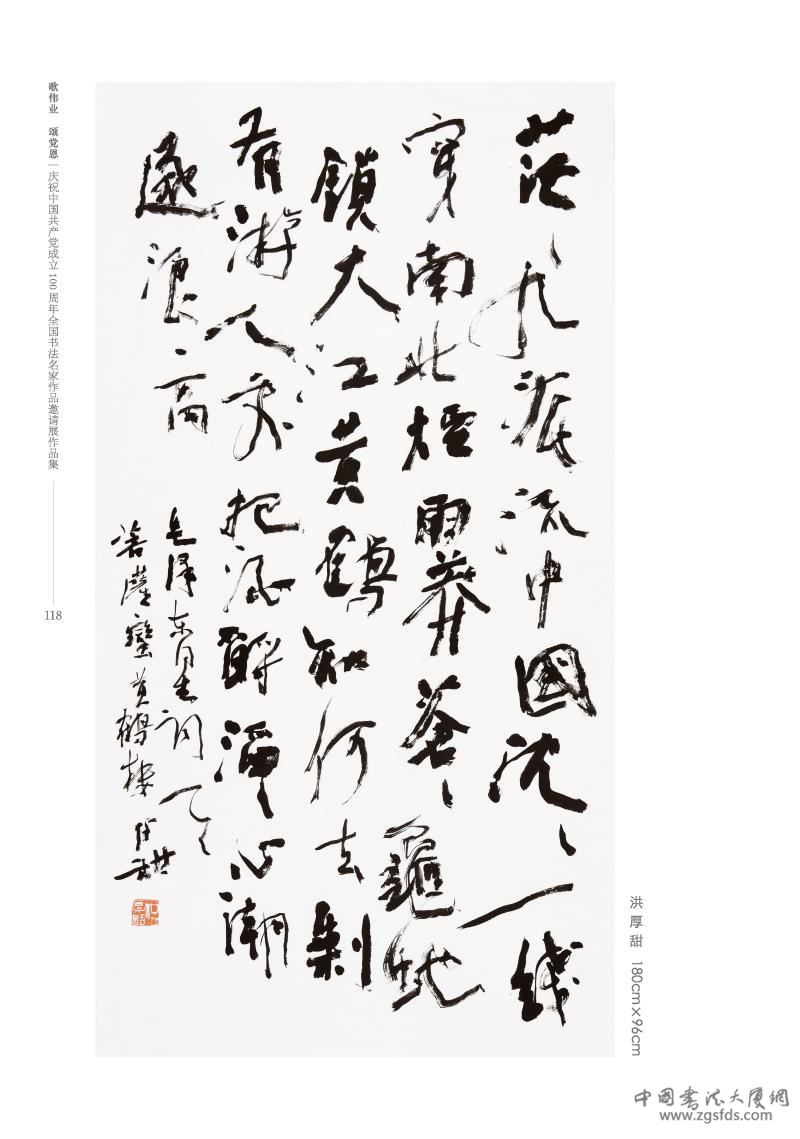 茫〻九派流中國沈〻一綫
穿南北煙雨莽蒼〻龜蛇
鎖大江黃鶴知何去剩
有游人處把酒酹滔〻心潮
逐浪高
毛澤东同志词
菩薩蠻黄鶴楼 厚甜
歌伟业 颂党恩 | 庆祝中国共产党成立100周年全国书法名家作品邀请展作品集
118
洪厚甜 180cm×96cm
中国书法大厦網
www.zgsfds.com